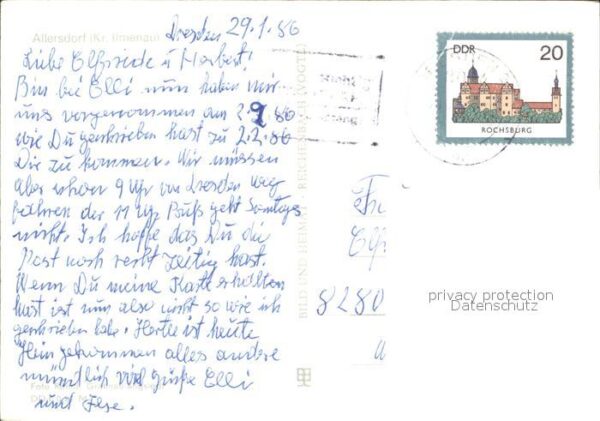 Allersdorf (Kr. Ilmenau)
Dresden 29.1.86
Liebe Elfriede u Herbert!
Bin bei Elli nun haben wir
uns vorgenommen am 2.2.86
wie Du geschrieben hast zu
Dir zu kommen. Wir müssen
aber schon 9 Uhr von Dresden weg
fahren der 11 Uhr Buß geht Sontags
nicht. Ich hoffe das Du die
Post noch recht zeitig hast.
Wenn Du meine Karte erhalten
hast ist nun also nicht so wie ich
geschrieben habe. Hertle ist heute
Heim gekommen alles andere
mündlich viel Grüße Elli
und
DDR
20
ROCHSBURG
BILD UND HEIMAT REICHENBACH (VOGTL)
8280
privacy protection
Datenschutz
Foto